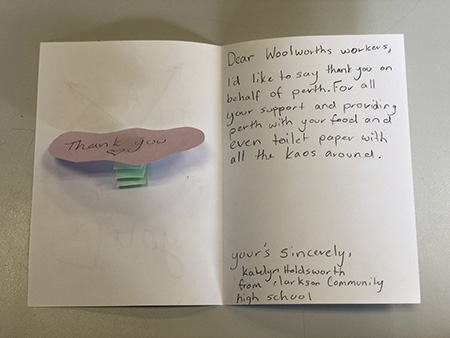 Thank you
Dear Woolworths workers,
I'd like to say thank you on
behalf of perth. For all
your support and providing
perth with your food and
even toilet paper with
all the kaos around.
your's sincerely,
Katelyn Holdsworth
from clarkson Community
high school